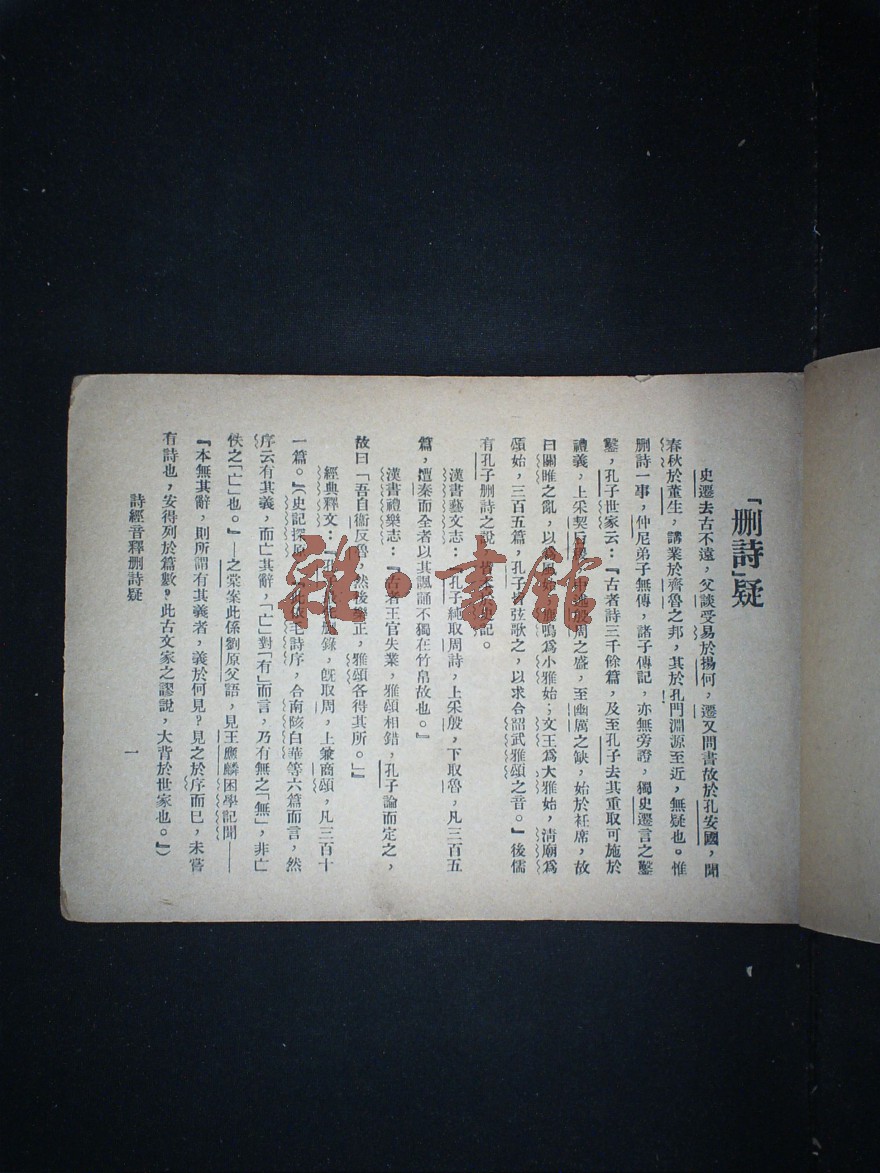 「刪詩」疑
史遷去古不遠，父談受易於揚何，遷又問書故於孔安國，聞
春秋於董生，講業於齊魯之邦，其於孔門淵源至近，無疑也。惟
刪詩一事，仲尼弟子無傳，諸子傳記，亦無旁證，獨史遷言之鑿
鑿，孔子世家云：『古者詩三千餘篇，及至孔子去其重取可施於
禮義，上采契后稷，中述殷周之盛，至幽厲之缺，始於袵席，故
曰關雎之亂，以為風始，鹿鳴為小雅始；文王為大雅始，清廟為
頌始，三百五篇，孔子皆弦歌之，以求合韶武雅頌之音。』後儒
有孔子刪詩之說，記。
漢書藝文志：『孔子純取周詩，上采殷，下取魯，凡三百五
篇，遭秦而全者以其諷誦不獨在竹帛故也。』
漢書禮樂志：『古者王官失業，雅頌相錯，孔子論而定之，
故曰「吾自衞反魯，然後樂正，雅頌各得其所。」』
經典釋文：『孔錄，既取周，上兼商頌，凡三百十
一篇。』（史記探原毛詩序，合南陔白華等六篇而言，然
序云有其義，而亡其辭，「亡」對「有」而言，乃有無之「無」，非亡
佚之「亡」也。』——之棠案此係劉原父語，見王應麟困學記聞——
『本無其辭，則所謂有其義者，義於何見？見之於序而已，未嘗
有詩也，安得列於篇數？此古文家之謬說，大背於世家也。』）
詩經音釋刪詩疑
一
雜·書館